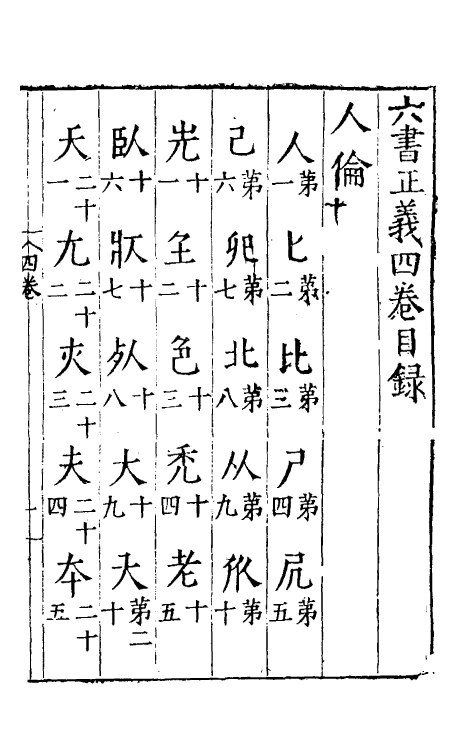 六書正義四卷目録
人倫十
人第一 匕第二 比第三 尸第四 凥第五
己第六 夗第七 北第八 从第九 㐺第十
兂十一 𡈼十二 色十三 禿十四 老十五
臥十六 十七 十八 大十九 天第二十
夭二十一 尢二十二 二十三 夫二十四 夲二十五
四卷